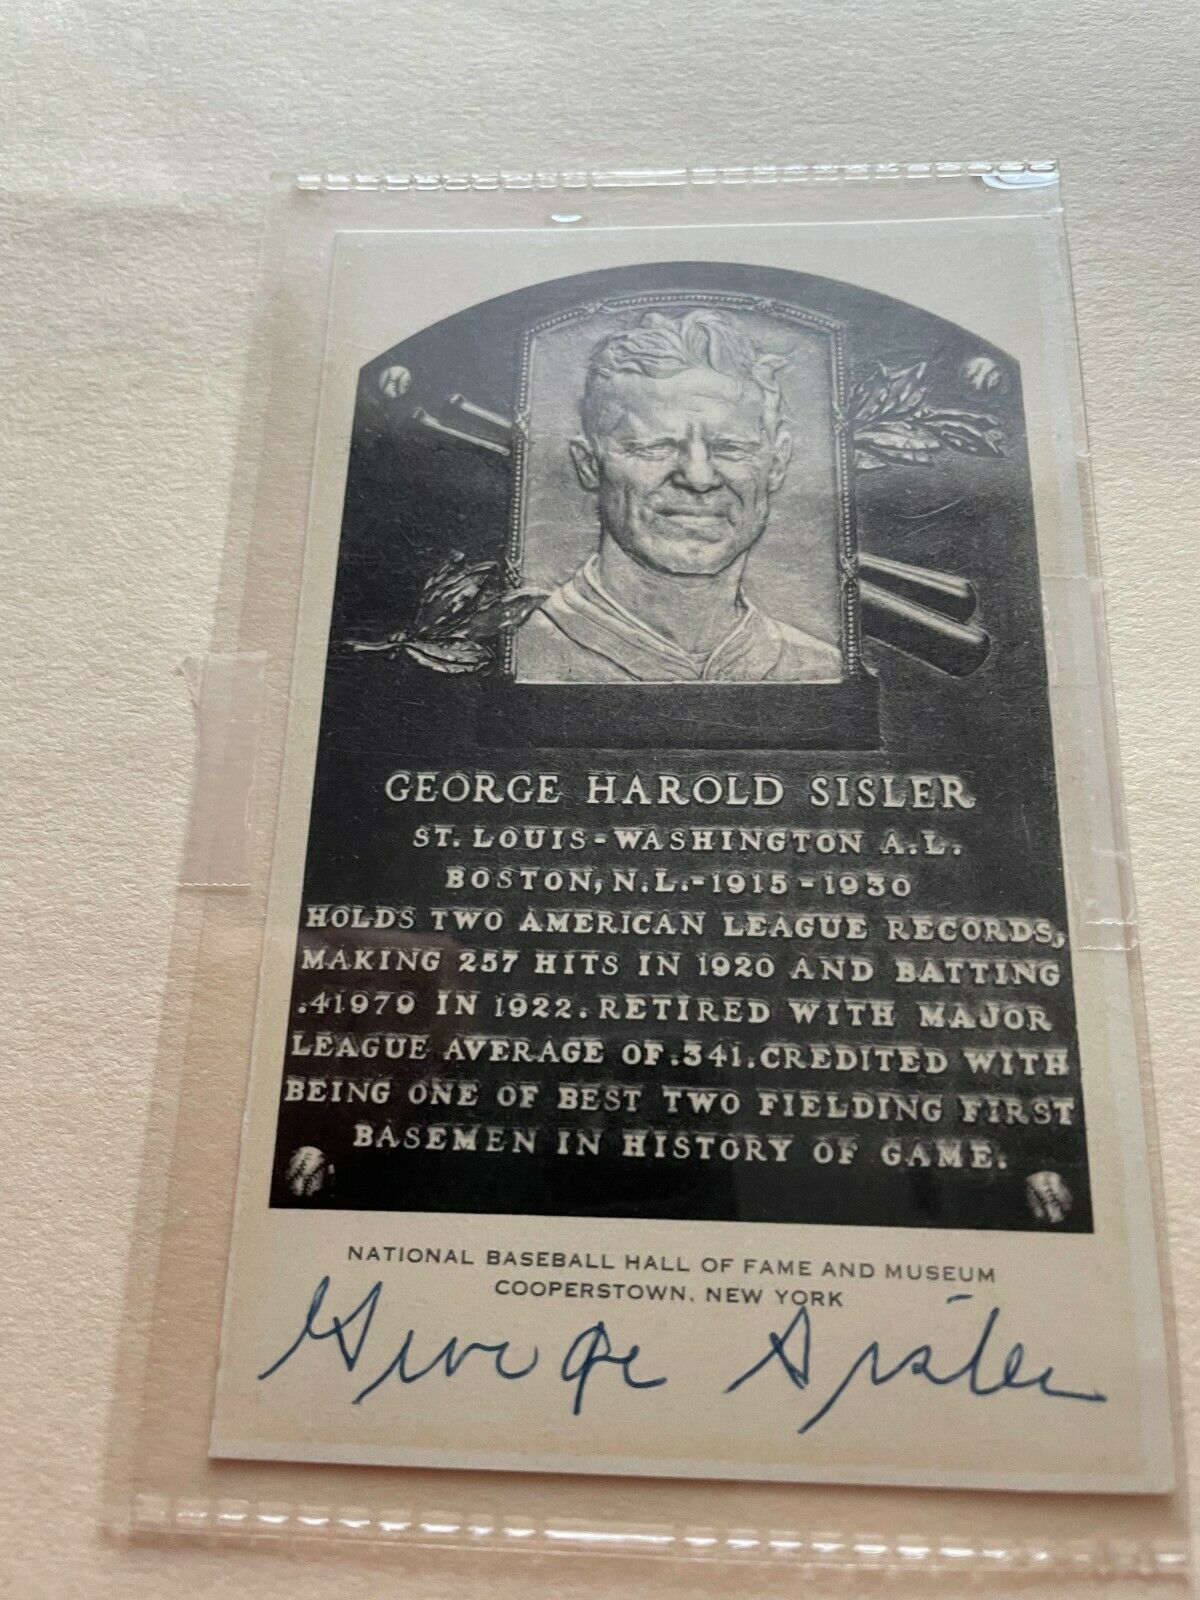 GEORGE HAROLD SISLER
ST. LOUIS-WASHINGTON A.L.
BOSTON, N.L.-1915-1930
HOLDS TWO AMERICAN LEAGUE RECORDS,
MAKING 257 HITS IN 1920 AND BATTING
.41979 IN 1922. RETIRED WITH MAJOR
LEAGUE AVERAGE OF .341. CREDITED WITH
BEING ONE OF BEST TWO FIELDING FIRST
BASEMEN IN HISTORY OF GAME.
NATIONAL BASEBALL HALL OF FAME AND MUSEUM
COOPERSTOWN, NEW YORK
George Sisler